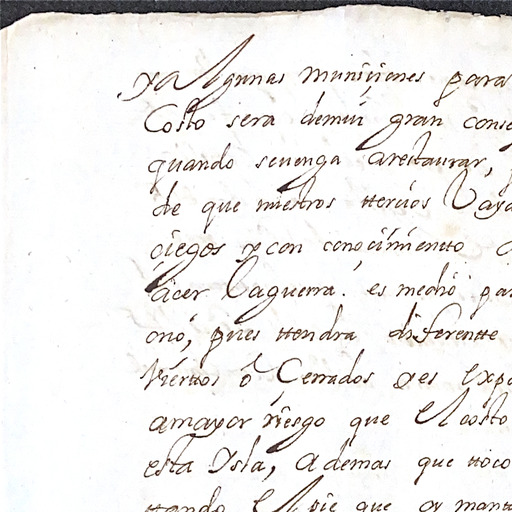 ya Algunas municiones para
Costo sera demui gran conse
quando sevenga arestaurar,
de que nuestros ttercios Vaya
ciegos y con conocimientto
acer laguerra. es medio pa
ono, pues ttendra diferentte
Viertos ô Cerrados y es Expo
amayor riesgo que El costo
esta Ysla, ademas que ttoco
ttando El pie que oy mantt